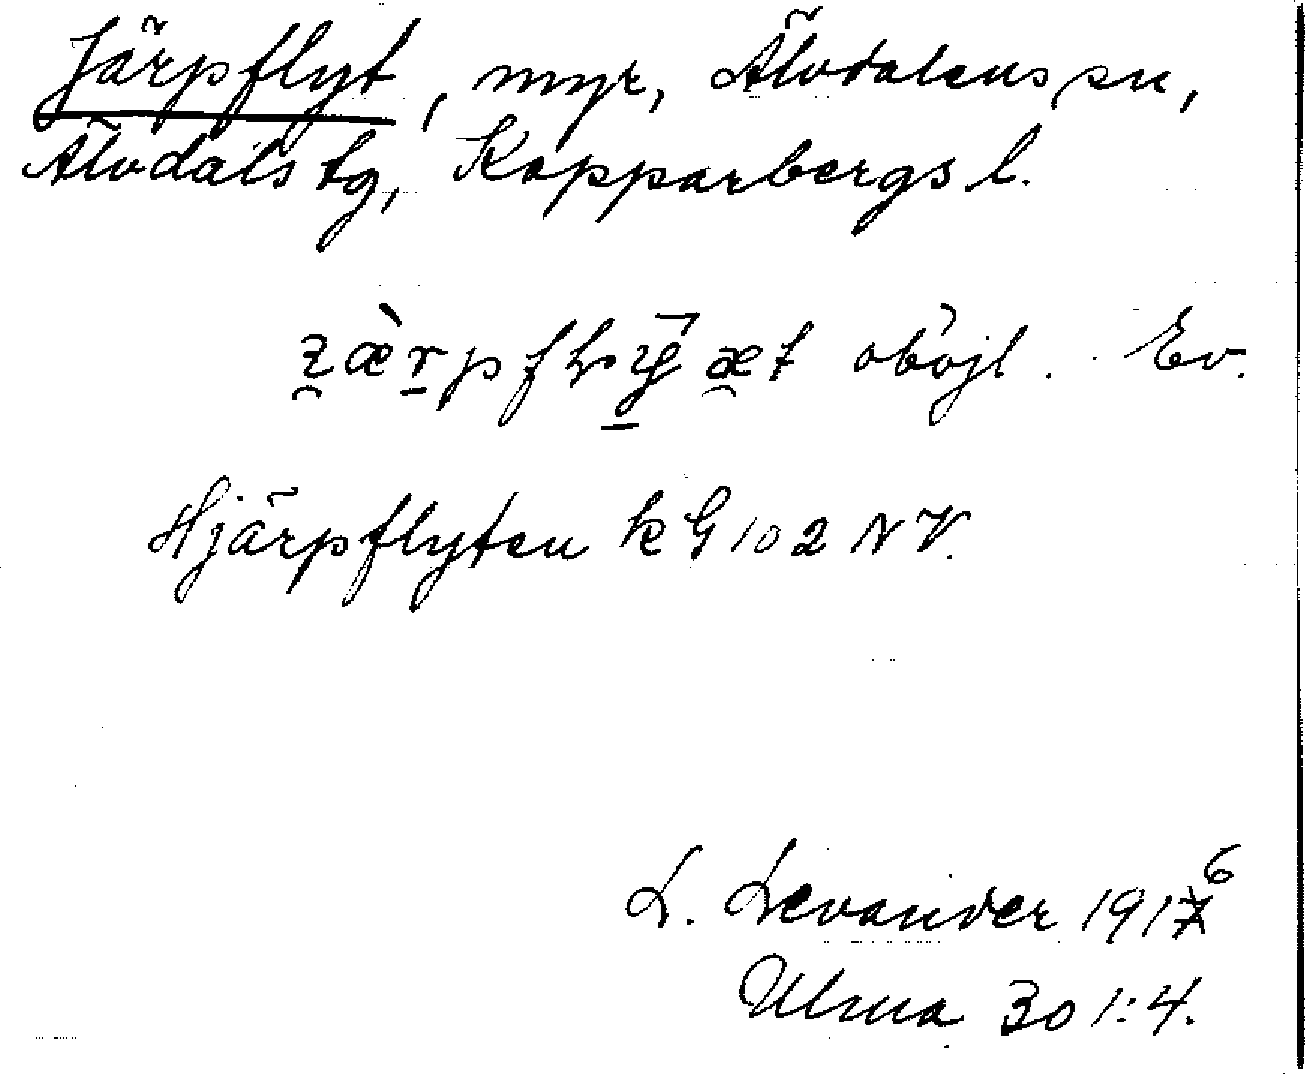 Järpflyt, myr, Älvdalens sn,
Älvdals tg, Kopparbergs l.
oböjl. Ev.
Hjärpflyten k G 102 NV.
L. Levander 1916
Ulma 301:4.